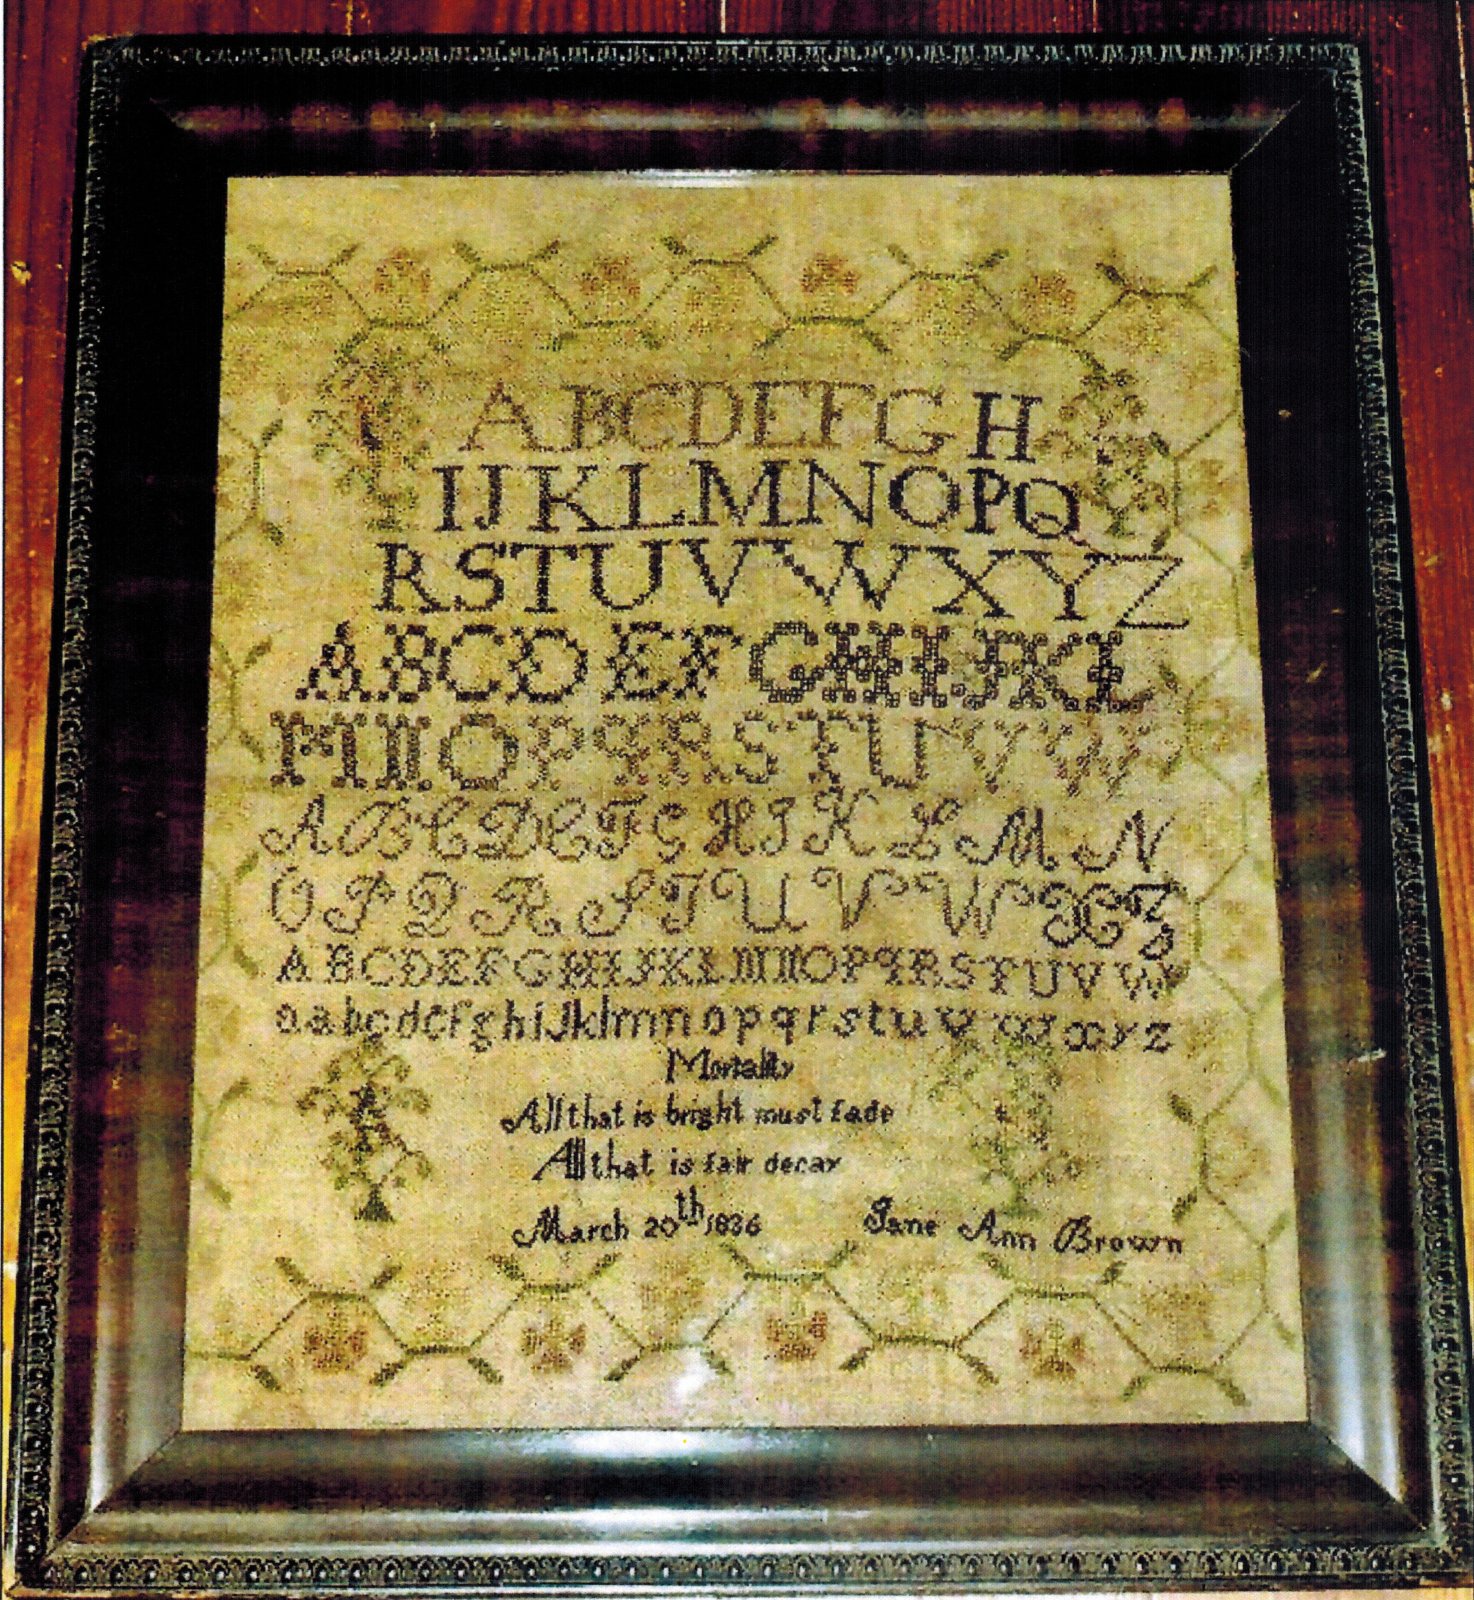 ABCDEFGH
IJKLMNOPQ
RSTUVWXYZ
ABCDEFGHIJKL
MNOPQRSTUVW
ABCDEFGHIKLMN
OPQRSTUVWXZ
ABCDEFGHIJKLMNOPQRSTUVW
aabcdefghijklmnopqrstuvwxyz
Mortality
All that is bright must fade
All that is fair decay
March 20th 1836 Jane Ann Brown